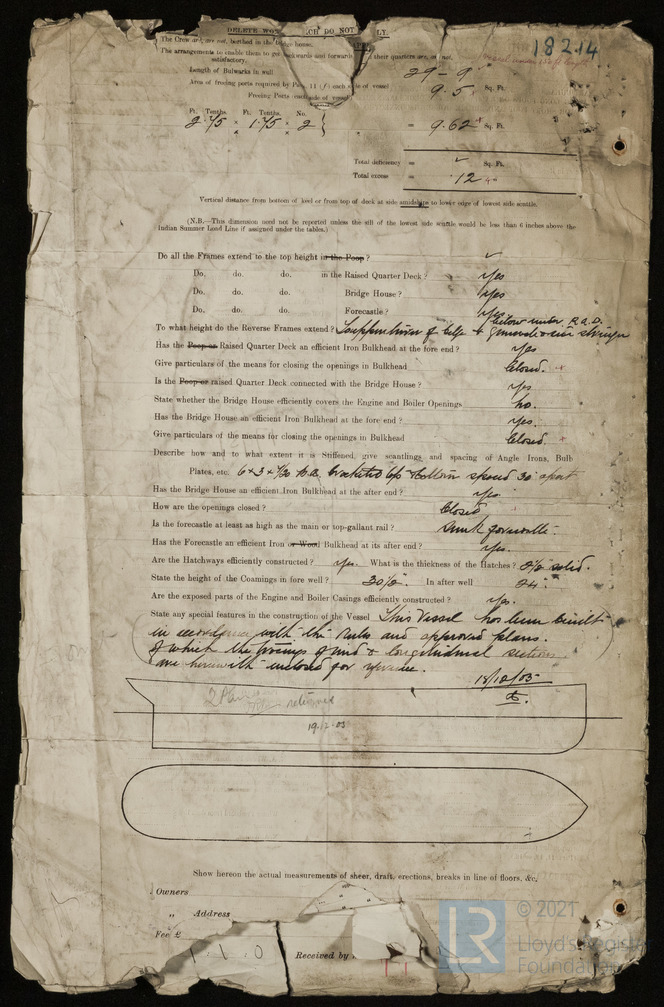 DELETE WO CH DO NOT LY.
18214
The Crew are, are not, berthed in the bridge house.
The arrangements to enable them to get backwards and forwards their quarters are, are not,
satisfactory.
Length of Bulwarks in well 29 - 9
Area of freeing ports required by Par. 11 (f) each side of vessel 9.5 Sq. Ft.
Freeing Ports each side of vessel
Ft. Tenths. Ft. Tenths. No.
2.75 × 1.75 × 2 } = 9.62 Sq. Ft.
Total deficiency = Sq. Ft.
Total excess = .12
Vertical distance from bottom of keel or from top of deck at side amidships to lower edge of lowest side scuttle.
(N.B.—This dimension need not be reported unless the sill of the lowest side scuttle would be less than 6 inches above the
Indian Summer Load Line if assigned under the tables.)
Do all the Frames extend to the top height in the Poop?
Do. do. do. in the Raised Quarter Deck? Yes
Do. do. do. Bridge House? Yes
Do. do. do. Forecastle? Yes
below under R.Q.D.
To what height do the Reverse Frames extend? stringer
Has the Poop or Raised Quarter Deck an efficient Iron Bulkhead at the fore end? Yes
Give particulars of the means for closing the openings in Bulkhead Closed.
Is the Poop or raised Quarter Deck connected with the Bridge House? Yes
State whether the Bridge House efficiently covers the Engine and Boiler Openings No.
Has the Bridge House an efficient Iron Bulkhead at the fore end? Yes.
Give particulars of the means for closing the openings in Bulkhead Closed
Describe how and to what extent it is Stiffened, give scantlings and spacing of Angle Irons, Bulb
Plates, etc. 6 × 3 × bracketed top & bottom spaced 30" apart
Has the Bridge House an efficient Iron Bulkhead at the after end? yes
How are the openings closed? Closed
Is the forecastle at least as high as the main or top-gallant rail? Sunk forecastle.
Has the Forecastle an efficient Iron or Wood Bulkhead at its after end? Yes.
Are the Hatchways efficiently constructed? yes. What is the thickness of the Hatches? 2½" solid.
State the height of the Coamings in fore well? 30½" In after well 24"
Are the exposed parts of the Engine and Boiler Casings efficiently constructed? Yes.
State any special features in the construction of the Vessel This Vessel has been built
in accordance with the Rules and approved plans.
of which the profile & longitudinal section
are herewith enclosed for reference.
18/12/03
2 Plans returned
19-12-03
Show hereon the actual measurements of sheer, draft, erections, breaks in line of floors, &c.
Owners
„ Address
Fee £
1 . 1 . 0 Received by
LR
© 2021
Lloyd's Register
Foundation